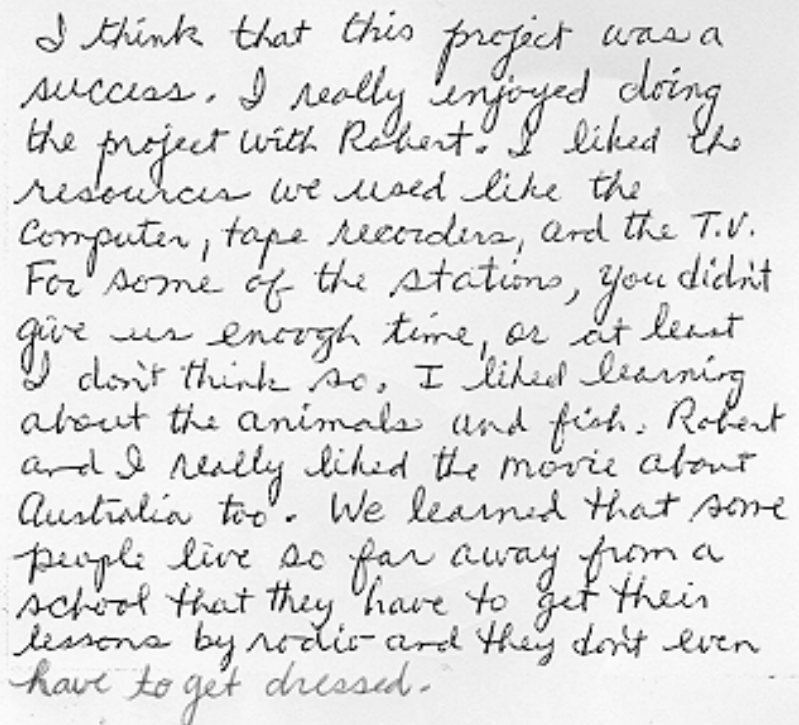 I think that this project was a
success. I really enjoyed doing
the project with Robert. I liked the
resources we used like the
computer, tape recorders, and the T.V.
For some of the stations, you didn't
give us enough time, or at least
I don't think so. I liked learning
about the animals and fish. Robert
and I really liked the movie about
Australia too. We learned that some
people live so far away from a
school that they have to get their
lessons by radio and they don't even
have to get dressed.